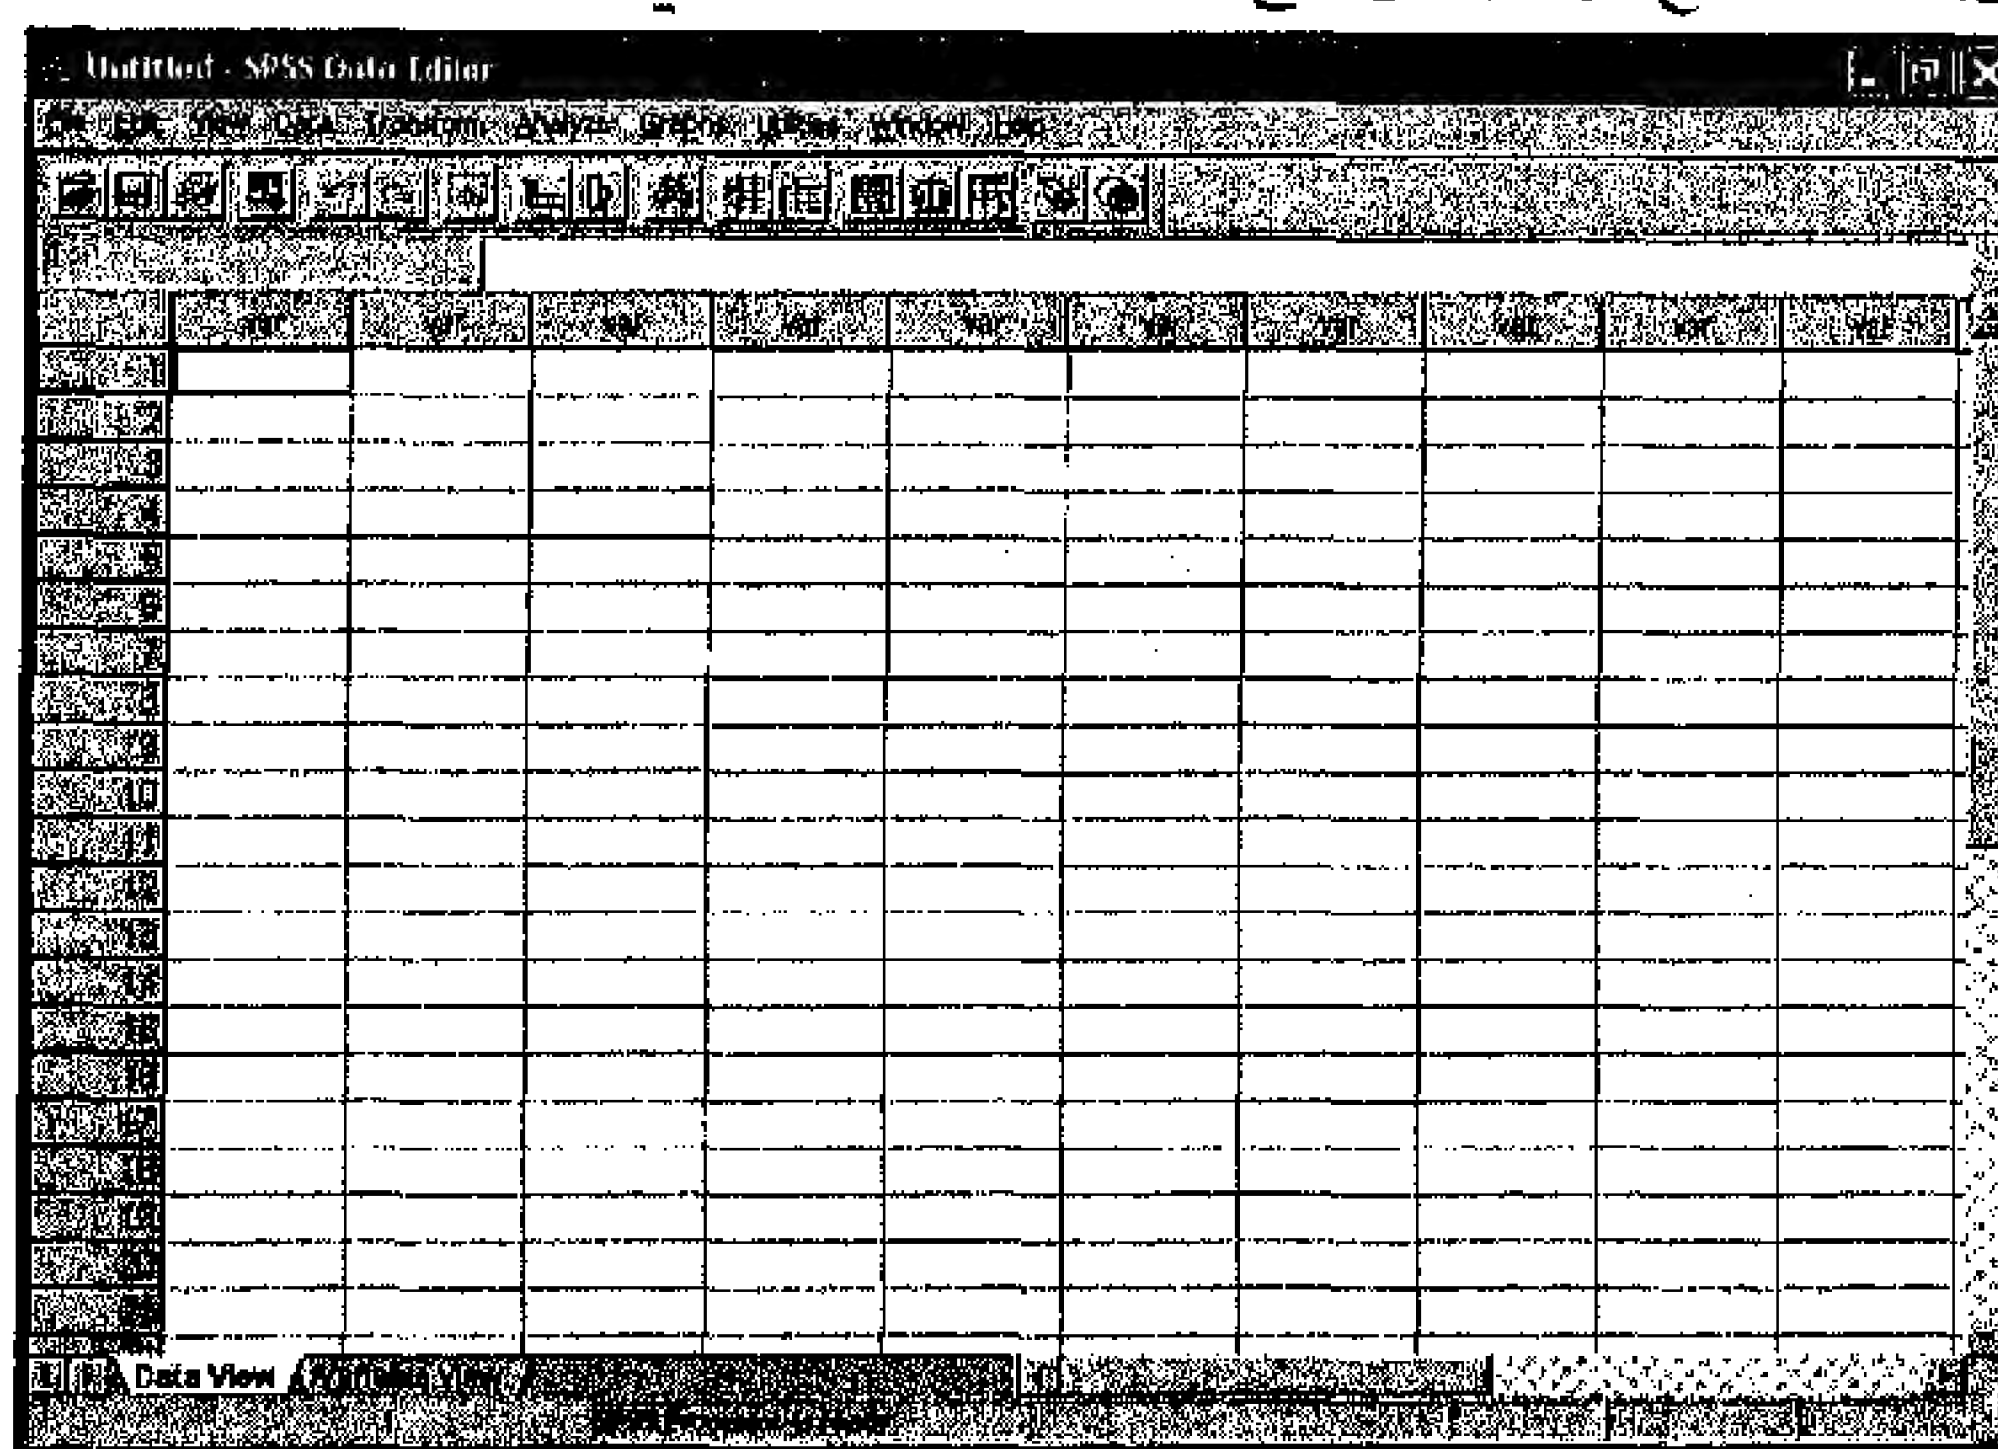 Untitled - SPSS Data Editor
File Edit View Data Transform Analyze Graphs Utilities Window Help
1:
var var var var var var var var var var
1
2
3
4
5
6
7
8
9
10
11
12
13
14
15
16
17
18
19
Data View Variable View
SPSS Processor is ready